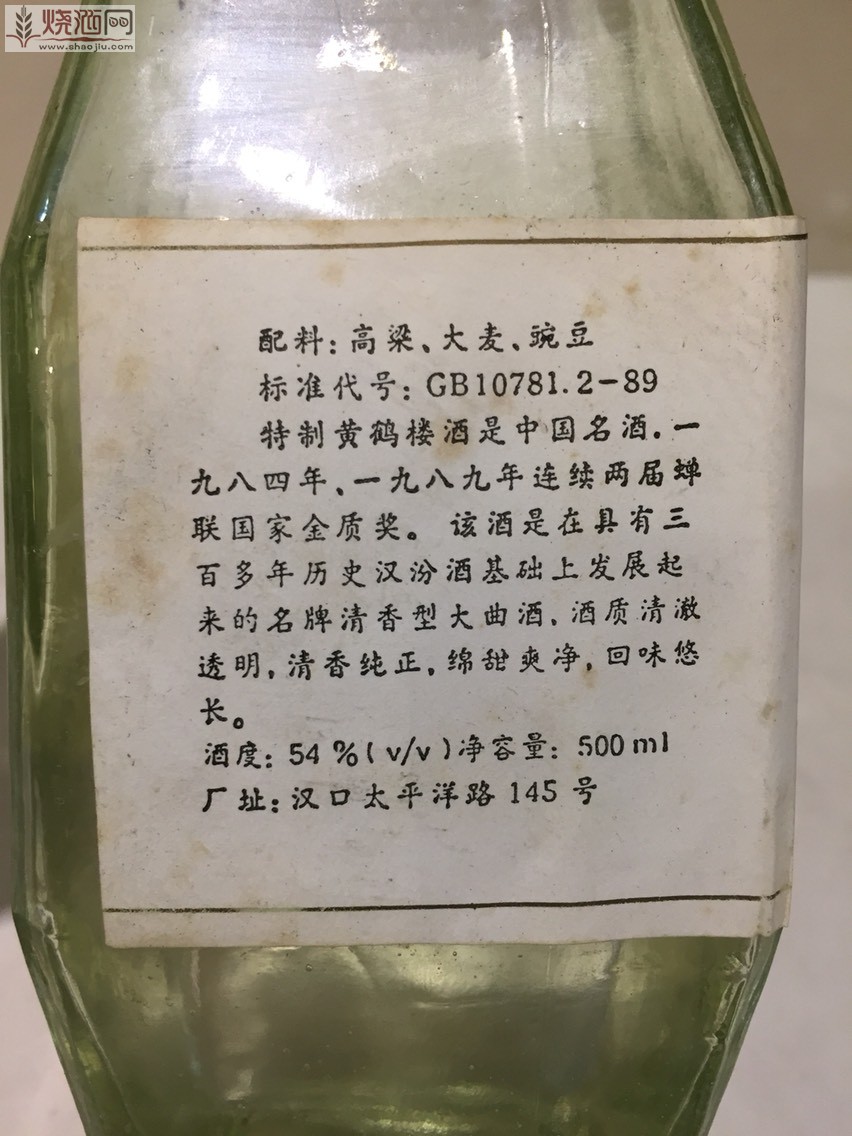 烧酒网
www.shaojiu.com
配料：高梁、大麦、豌豆
标准代号：GB10781.2-89
特制黄鹤楼酒是中国名酒．一
九八四年、一九八九年连续两届蝉
联国家金质奖。该酒是在具有三
百多年历史汉汾酒基础上发展起
来的名牌清香型大曲酒，酒质清澈
透明，清香纯正，绵甜爽净，回味悠
长。
酒度：54％(v/v)净容量：500ml
厂址：汉口太平洋路145号